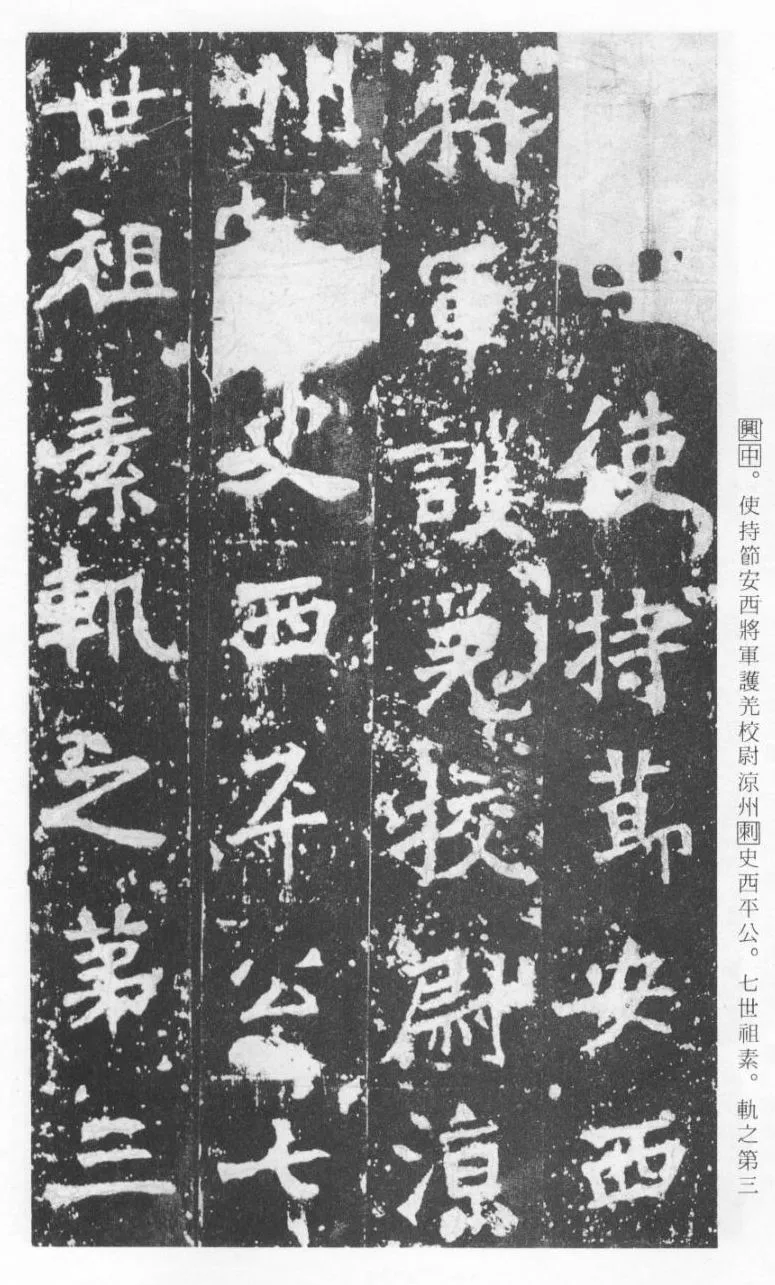 興中。使持節安西將軍護羌校尉涼州刺史西平公。七世祖素。軌之第三
使持莭安西
將軍護羌挍尉涼
州史西平公七
世祖素軌之第三